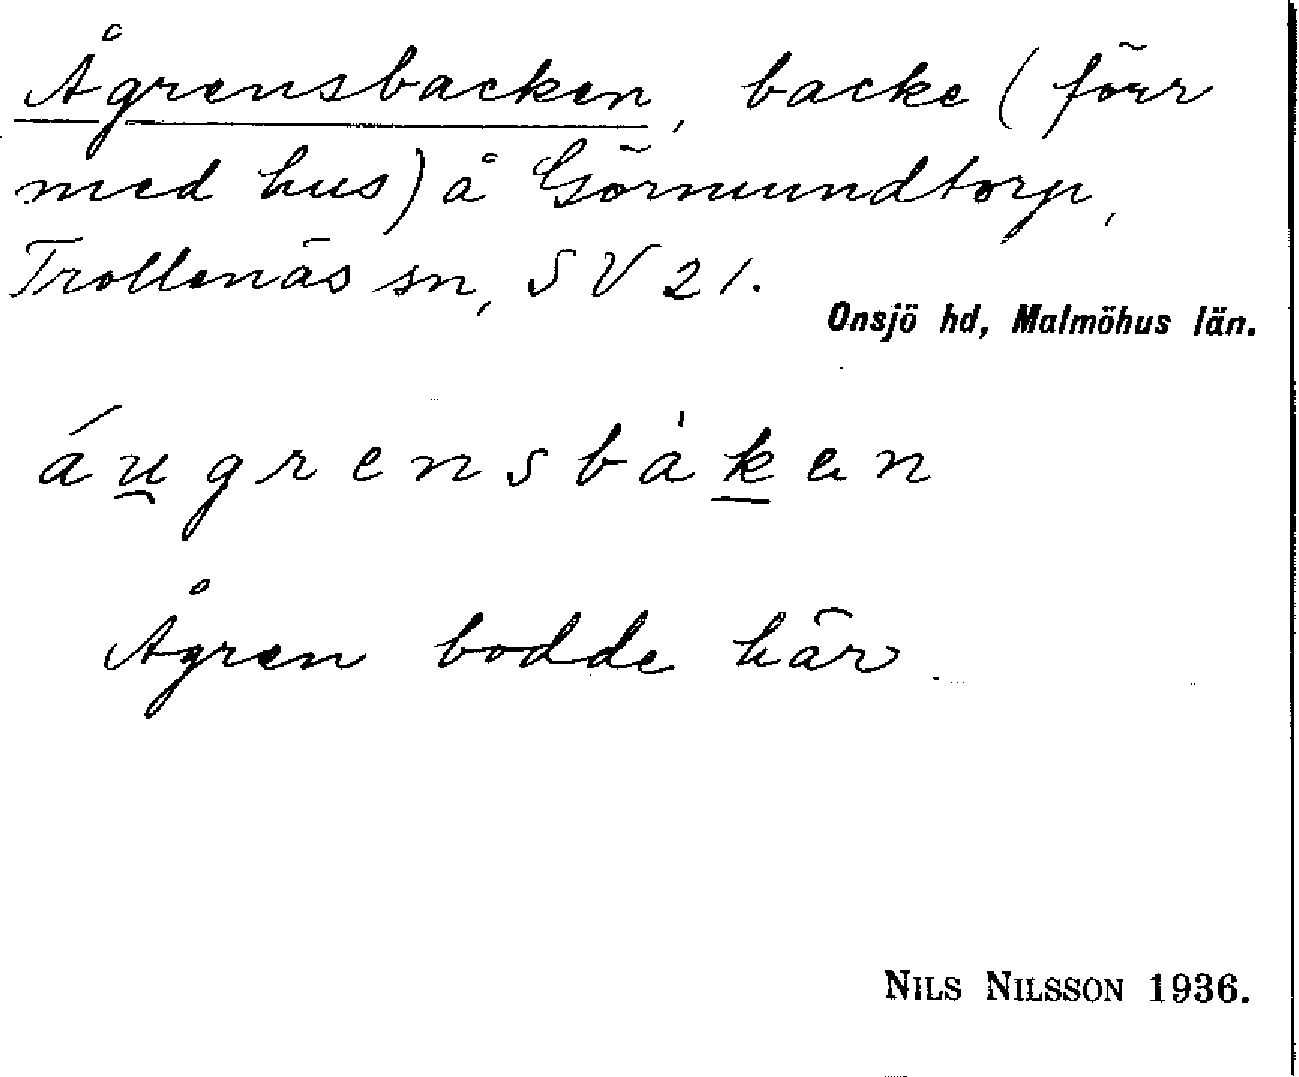 Ågrensbacken, backe (förr
med hus) å Görmundtorp,
Trollenäs sn, SV 21.
Onsjö hd, Malmöhus län.
áu̯grensbàḵen
Ågren bodde här.
NILS NILSSON 1936.